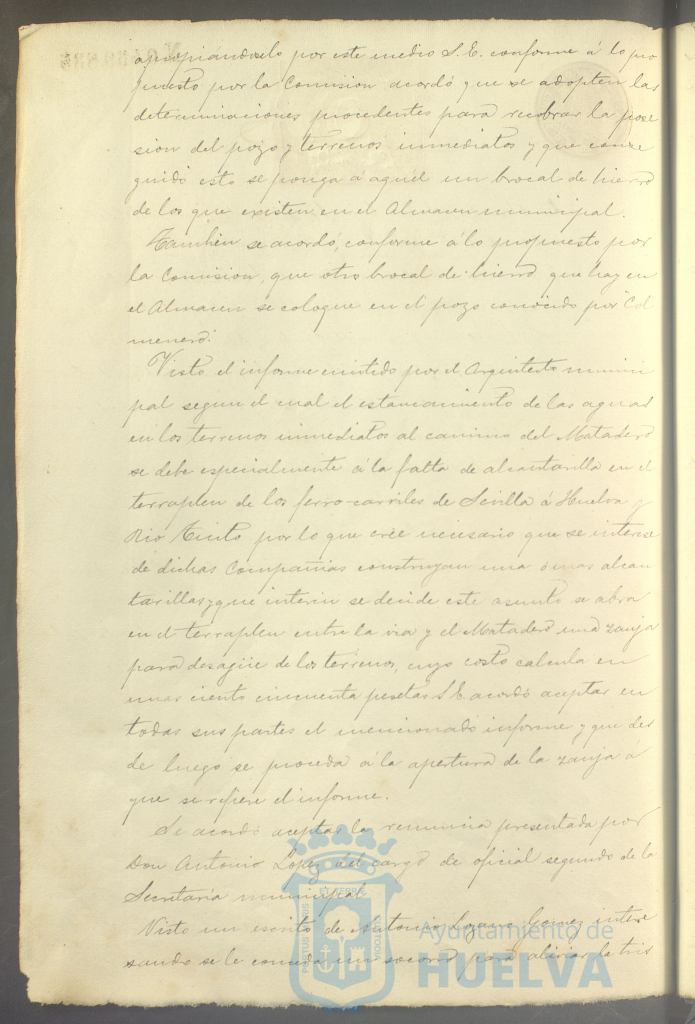 apropiándoselo por este medio S. E. conforme á lo pro
puesto por la Comision acordó que se adopten las
determinaciones procedentes para recobrar la pose
sion del pozo y terrenos inmediatos y que conse
guido esto se ponga á aquel un brocal de hierro
de los que existen en el Almacen municipal.
Tambien se acordó, conforme á lo propuesto por
la Comision, que otro brocal de hierro que hay en
el Almacen se coloque en el pozo conocido por Col
menero.
Visto el informe emitido por el Arquitecto munici
pal segun el cual el estancamiento de las aguas
en los terrenos inmediatos al camino del Matadero
se debe especialmente á la falta de alcantarilla en el
terraplen de los ferro-carriles de Sevilla á Huelva y
Rio Tinto por lo que cree necesario que se interese
de dichas Compañias construyan una ó mas alcan
tarillas y que interin se decide este asunto se abra
en el terraplen entre la via y el Matadero una zanja
para desagüe de los terrenos, cuyo costo calcula en
unas ciento cincuenta pesetas S. E. acordó aceptar en
todas sus partes el mencionado informe y que des
de luego se proceda á la apertura de la zanja a
que se refiere el informe.
Se acordó aceptar la renuncia presentada por
Don Antonio Lopez del cargo de oficial segundo de la
Secretaría municipal
Visto un escrito de Antonio Lozano Gomez intere
sando se le conceda un socorro para aliviar la tris
PORTUS MARIS
ET TERRAE
CUSTODIA
Ayuntamiento de
HUELVA